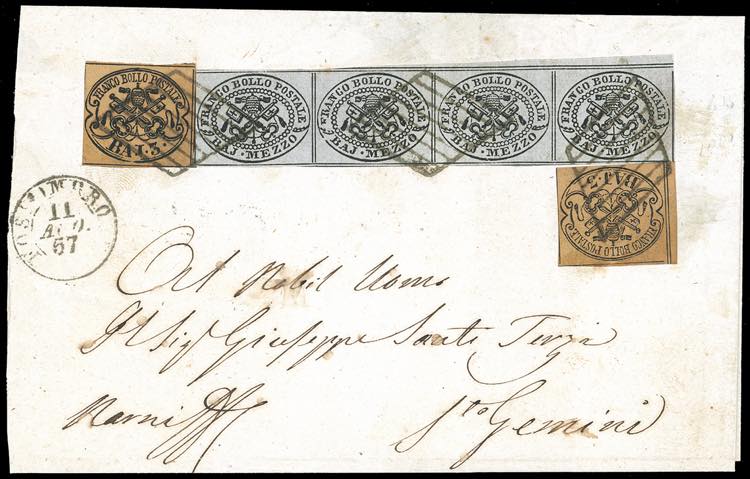 FRANCO BOLLO POSTALE
BAI. 3.
FRANCO BOLLO POSTALE
BAJ. MEZZO
FRANCO BOLLO POSTALE
BAJ. MEZZO
FRANCO BOLLO POSTALE
BAJ. MEZZO
FRANCO BOLLO POSTALE
BAJ. MEZZO
FRANCO BOLLO POSTALE
BAI. 3.
11
AGO.
57
Al Nobil Uomo
Il Sigr Giuseppe Santi Terzi
Narni
Sto Gemini